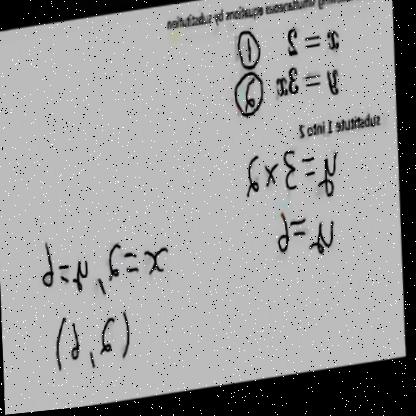 simultaneous equations by substitution
x = 2 ①
y = 3x ②
substitute 1 into 2
y = 3 × 2
y = 6
x = 2, y = 6
(2, 6)